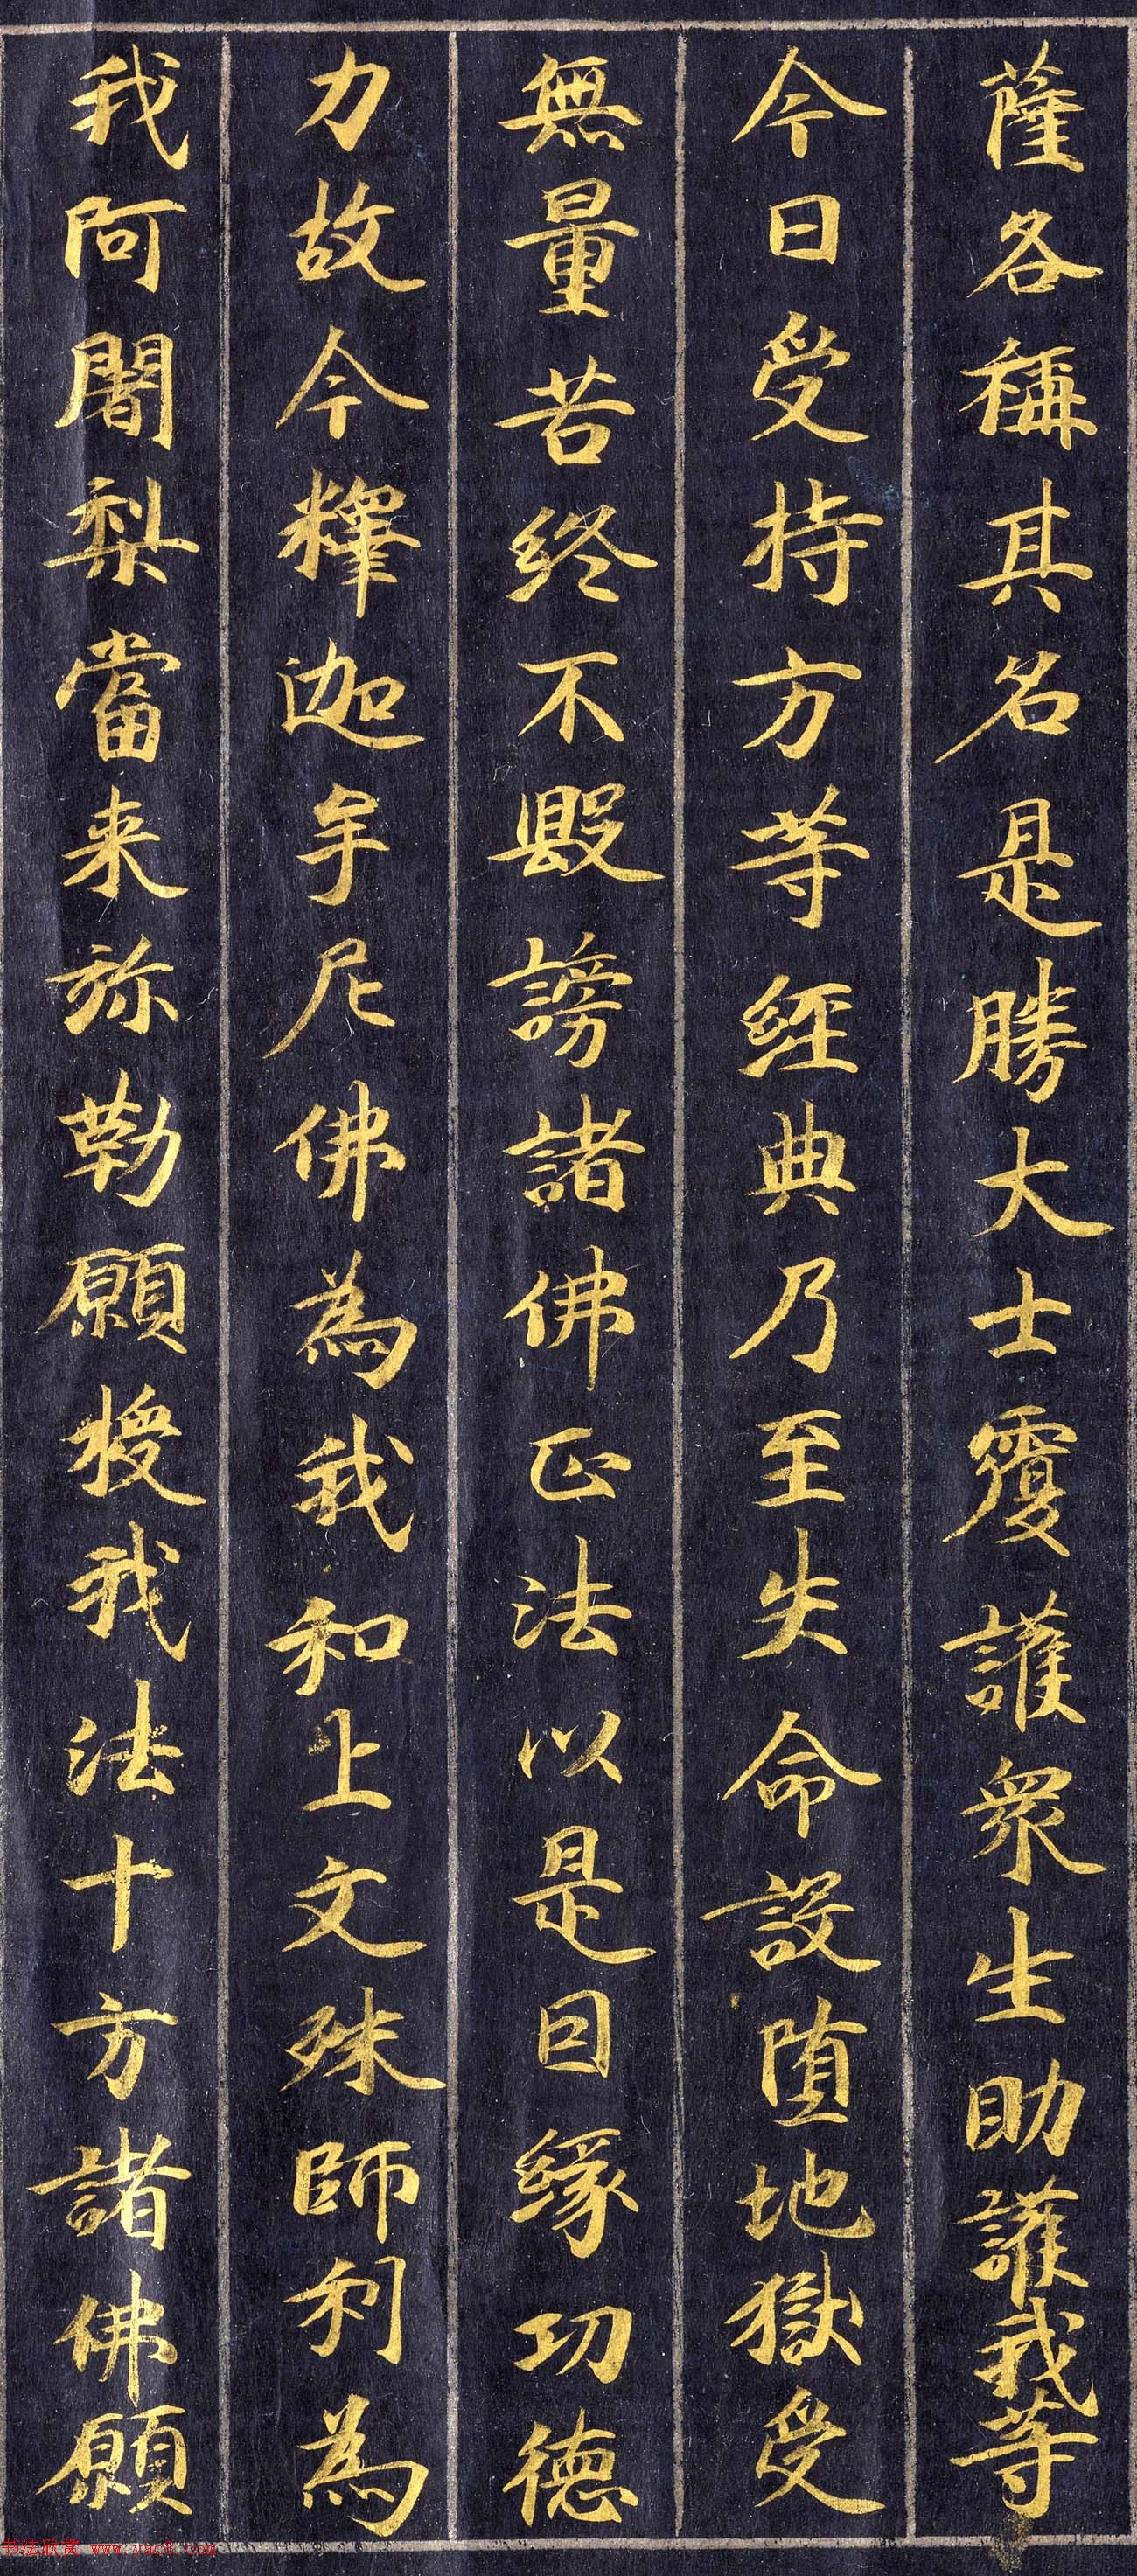 薩各稱其名是勝大士覆護眾生助護我等
今日受持方等經典乃至失命設墮地獄受
無量苦終不毀謗諸佛正法以是因緣功德
力故今釋迦牟尼佛為我和上文殊師利為
我阿闍梨當来弥勒願授我法十方諸佛願
书法欣赏